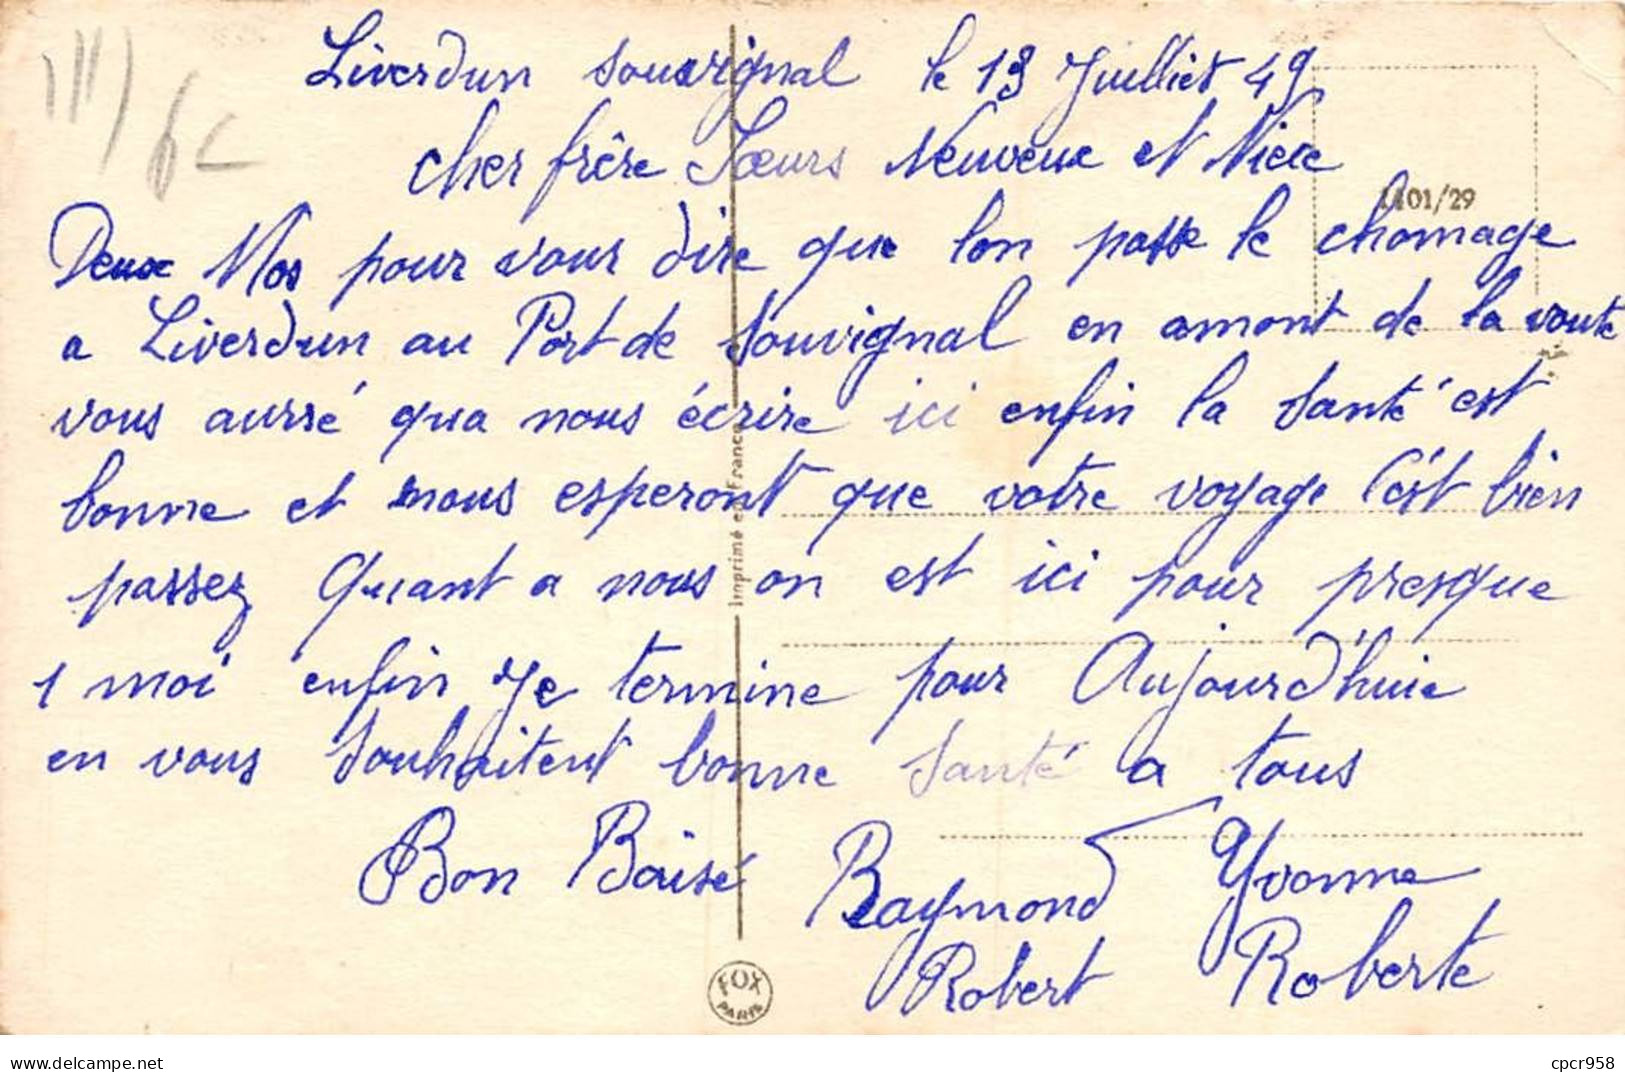 Liverdun Souvignal le 13 Juilliet 49
cher frère Sœurs Neuveux et Niece
1101/29
Deux Mos pour vous dire que lon passe le chomage
a Liverdun au Port de Souvignal en amont de la voute
vous aurré qua nous écrire ici enfin la Santé est
bonne et nous esperont que votre voyage C'est bien
passez Quant a nous on est ici pour presque
1 moi enfin Je termine pour Aujourd'huie
en vous Souhaitent bonne Santé a tous
Bon Baisé Raymond Yvonne
Robert Roberte
Imprimé en France
FOX
PARIS
delcampe.net
cpcr958